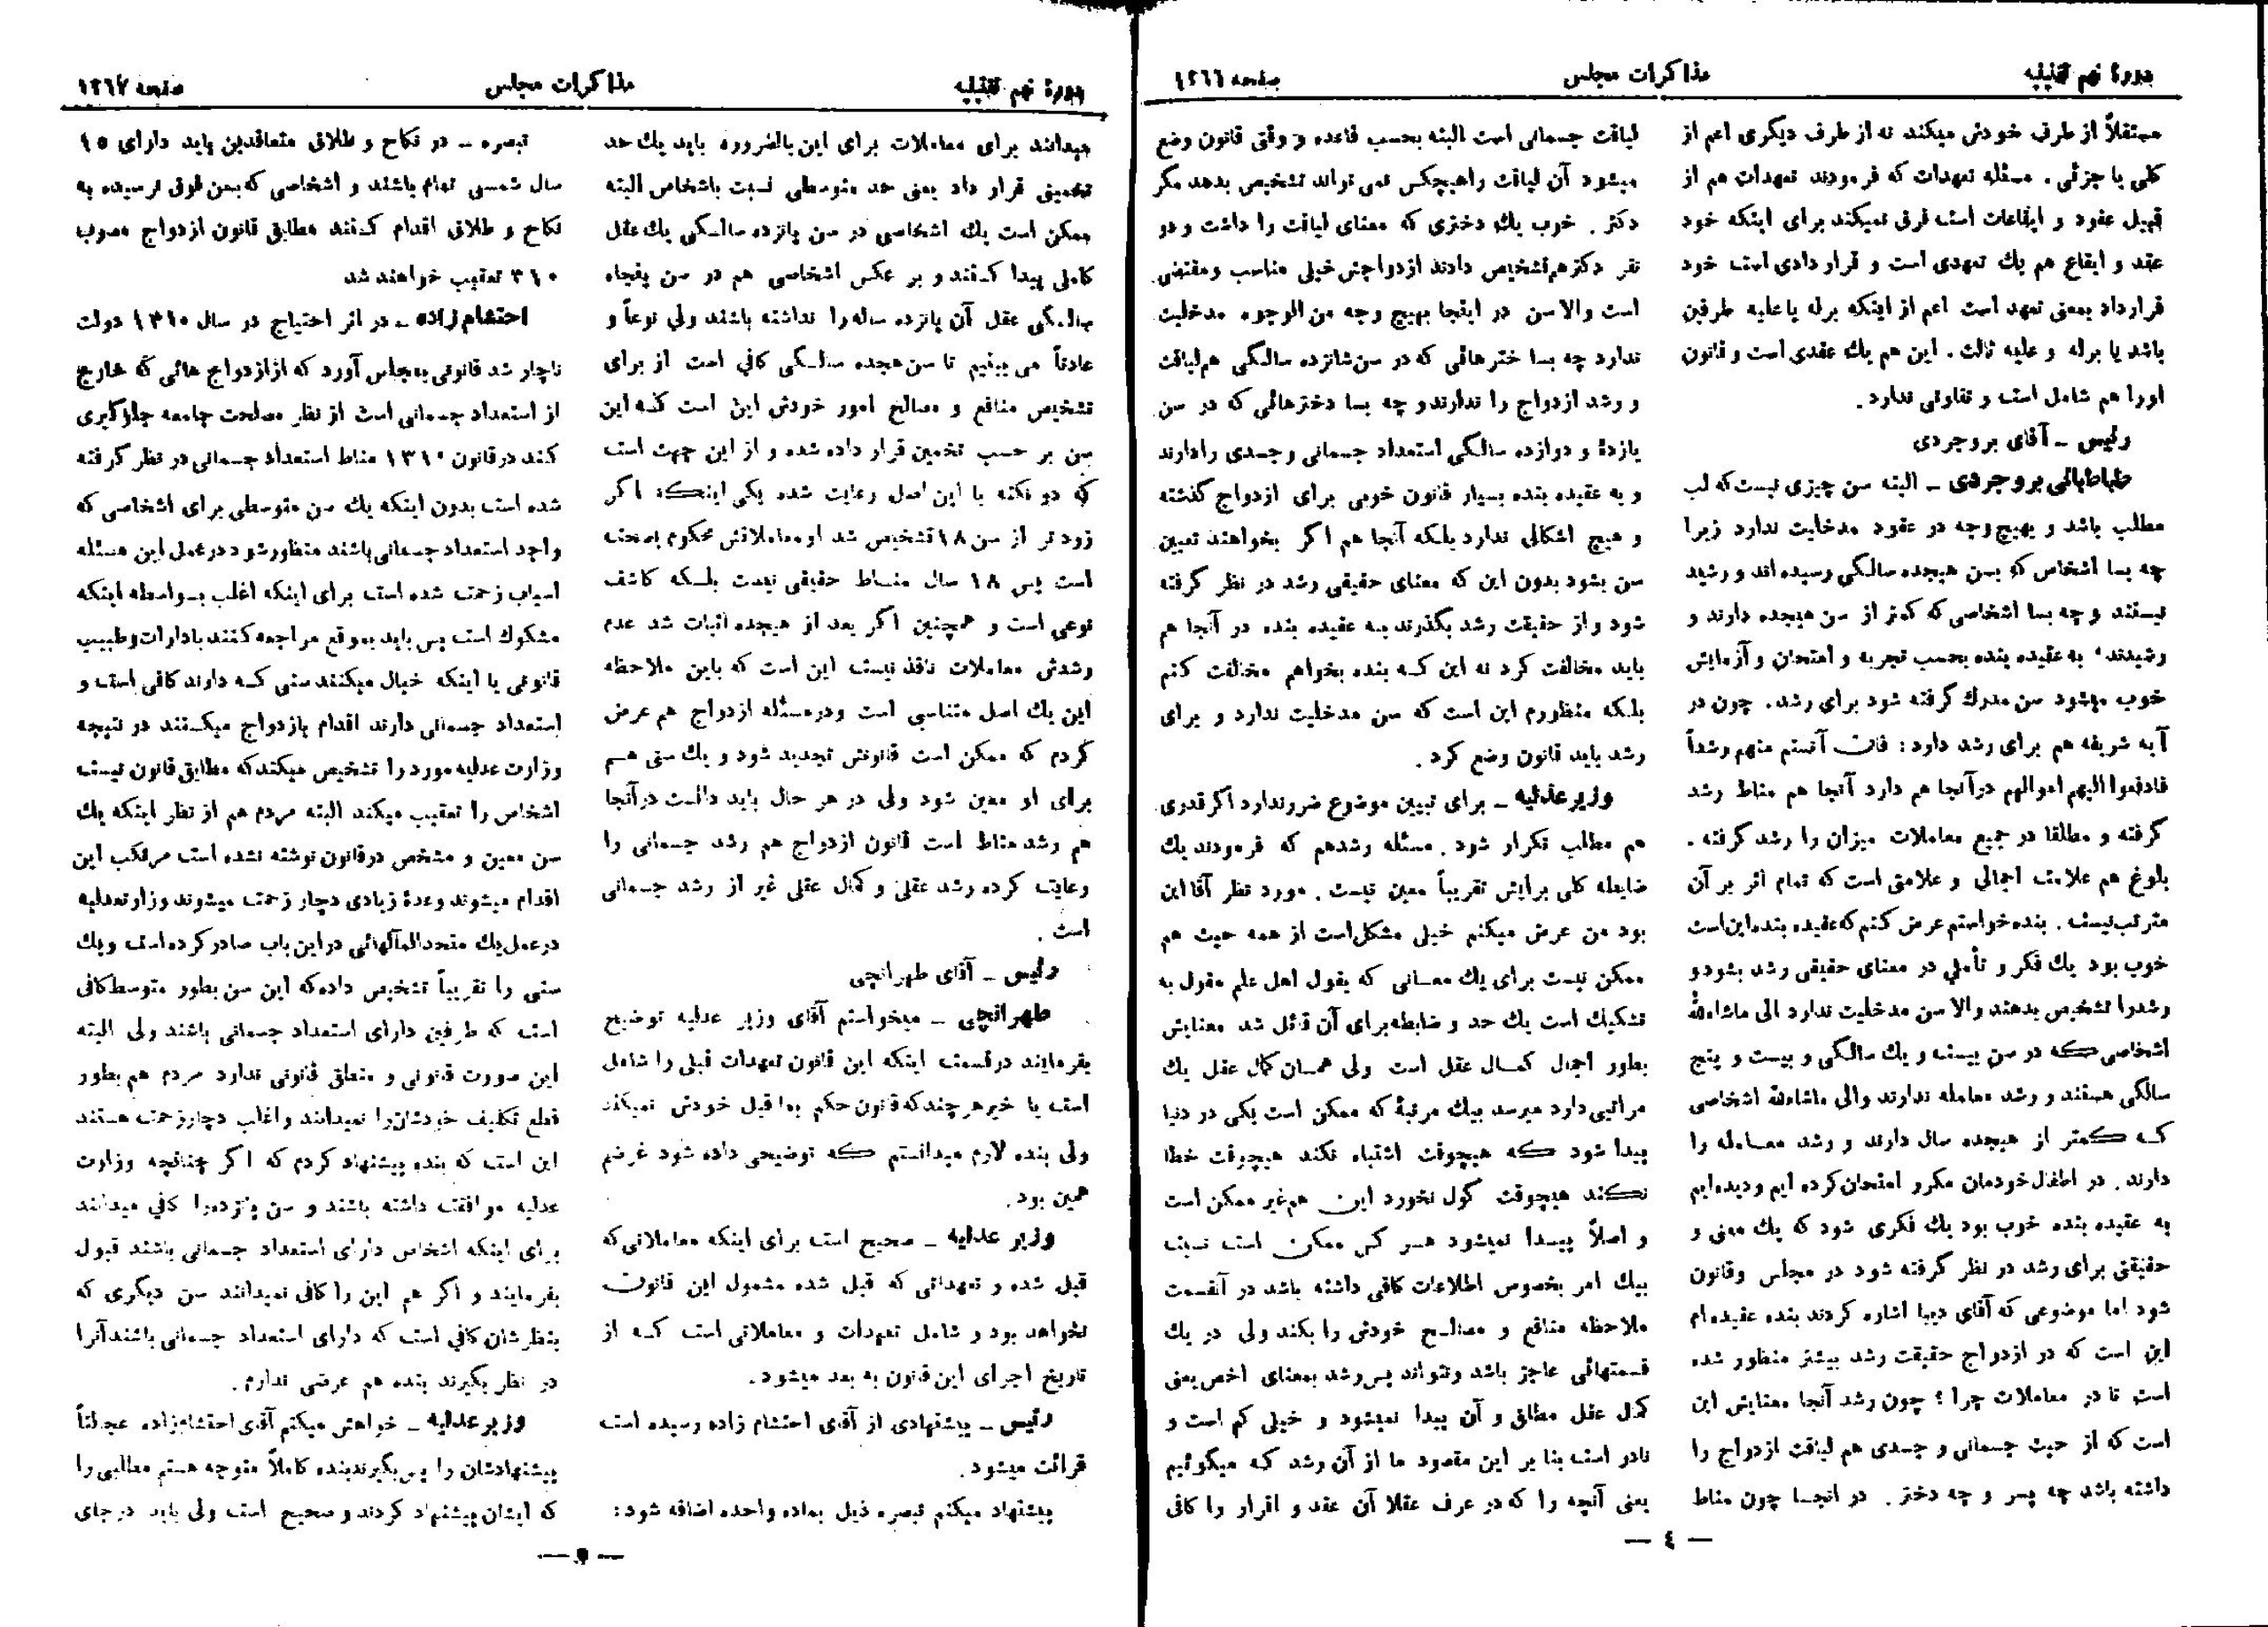 دورهٔ نهم تقنینیه
مذاکرات مجلس
صفحه ۱۲۶۶
مستقلاً از طرف خودش میکند نه از طرف دیگری اعم از
کلی یا جزئی . مسئله تعهدات که فرمودند تعهدات هم از
قبیل عقود و ایقاعات است فرق نمیکند برای اینکه خود
عقد و ایقاع هم یك تعهدی است و قراردادی است خود
قرارداد بمعنی تعهد است اعم از اینکه برله یا علیه طرفین
باشد یا برله و علیه ثالث . این هم یك عقدی است و قانون
اورا هم شامل است و تفاوتی ندارد .
رئیس ـ آقای بروجردی
طباطبائی بروجردی ـ البته سن چیزی نیست که لب
مطلب باشد و بهیچ وجه در عقود مدخلیت ندارد زیرا
چه بسا اشخاص که بسن هیجده سالگی رسیده اند و رشید
نیستند و چه بسا اشخاصی که کمتر از سن هیجده دارند و
رشیدند ، به عقیده بنده بحسب تجربه و امتحان و آزمایش
خوب میشود سن مدرك گرفته شود برای رشد . چون در
آیه شریفه هم برای رشد دارد : فان آنستم منهم رشداً
فادفعوا الیهم اموالهم در آنجا هم دارد آنجا هم مناط رشد
گرفته و مطلقا در جمیع معاملات میزان را رشد گرفته .
بلوغ هم علامت اجمالی و علامتی است که تمام اثر بر آن
مترتب نیست . بنده خواستم عرض کنم که عقیده بنده این است
خوب بود یك فکر و تأملی در معنای حقیقی رشد بشود و
رشدرا تشخیص بدهند والا سن مدخلیت ندارد الی ماشاءالله
اشخاصی که در سن بیست و یك سالگی و بیست و پنج
سالگی هستند و رشد معامله ندارند والی ماشاءالله اشخاصی
که کمتر از هیجده سال دارند و رشد معامله را
دارند . در اطفال خودمان مکرر امتحان کرده ایم و دیده ایم
به عقیده بنده خوب بود یك فکری شود که یك معنی و
حقیقتی برای رشد در نظر گرفته شود در مجلس و قانون
شود اما موضوعی که آقای دیبا اشاره کردند بنده عقیده ام
این است که در ازدواج حقیقت رشد بیشتر منظور شده
است تا در معاملات چرا ؟ چون رشد آنجا معنایش این
است که از حیث جسمانی و جسدی هم لیاقت ازدواج را
داشته باشد چه پسر و چه دختر . در انجا چون مناط
لیاقت جسمانی است البته بحسب قاعده و وقتی قانون وضع
میشود آن لیاقت را هیچکس نمی تواند تشخیص بدهد مگر
دکتر . خوب یك دختری که معنای لیاقت را داشت و دو
نفر دکتر هم تشخیص دادند ازدواجش خیلی مناسب و مقتضی
است والا سن در اینجا بهیچ وجه من الوجوه مدخلیت
ندارد چه بسا دخترهائی که در سن شانزده سالگی هم لیاقت
و رشد ازدواج را ندارند و چه بسا دخترهائی که در سن
یازده و دوازده سالگی استعداد جسمانی و جسدی را دارند
و به عقیده بنده بسیار قانون خوبی برای ازدواج گذشته
و هیچ اشکالی ندارد بلکه آنجا هم اگر بخواهند تعیین
سن بشود بدون این که معنای حقیقی رشد در نظر گرفته
شود و از حقیقت رشد بگذرند به عقیده بنده در آنجا هم
باید مخالفت کرد نه این که بنده بخواهم مخالفت کنم
بلکه منظورم این است که سن مدخلیت ندارد و برای
رشد باید قانون وضع کرد .
وزیر عدلیه ـ برای تبیین موضوع ضرر ندارد اگر قدری
هم مطلب تکرار شود . مسئله رشدهم که فرمودند یك
ضابطه کلی برایش تقریباً معین نیست . مورد نظر آقا این
بود من عرض میکنم خیلی مشکل است از همه حیث هم
ممکن نیست برای یك معانی که بقول اهل علم مقول به
تشکیك است یك حد و ضابطه برای آن قائل شد معنایش
بطور اجمال کمال عقل است ولی همان کمال عقل یك
مراتبی دارد میرسد بیك مرتبهٔ که ممکن است یکی در دنیا
پیدا شود که هیچوقت اشتباه نکند هیچوقت خطا
نکند هیچوقت گول نخورد این هم غیر ممکن است
و اصلاً پیدا نمیشود هر کس ممکن است نسبت
بیك امر بخصوص اطلاعات کافی داشته باشد در آنقسمت
ملاحظه منافع و مصالح خودش را بکند ولی در یك
قسمتهائی عاجز باشد و نتواند پس رشد بمعنای اخص یعنی
کمال عقل مطلق و آن پیدا نمیشود و خیلی کم است و
نادر است بنا بر این مقصود ما از آن رشد که میگوئیم
یعنی آنچه را که در عرف عقلا آن عقد و اقرار را کافی
— ٤ —
دورهٔ نهم تقنینیه
مذاکرات مجلس
صفحه ۱۲۶۷
میدانند برای معاملات برای این بالضروره باید یك حد
تخمینی قرار داد یعنی حد متوسطی نسبت باشخاص البته
ممکن است یك اشخاصی در سن پانزده سالگی یك عقل
کاملی پیدا کنند و بر عکس اشخاصی هم در سن پنجاه
سالگی عقل آن پانزده ساله را نداشته باشند ولی نوعاً و
عادتاً می بینیم تا سن هجده سالگی کافی است از برای
تشخیص منافع و مصالح امور خودش این است که این
سن بر حسب تخمین قرار داده شده و از این جهت است
که دو نکته با این اصل رعایت شده یکی اینکه اگر
زودتر از سن ۱۸ تشخیص شد او معاملاتش محکوم بصحت
است پس ۱۸ سال مناط حقیقی نیست بلکه کاشف
نوعی است و همچنین اگر بعد از هیجده اثبات شد عدم
رشدش معاملات نافذ نیست این است که باین ملاحظه
این یك اصل متناسبی است و در مسئله ازدواج هم عرض
کردم که ممکن است قانونش تجدید شود و یك سنی هم
برای او معین شود ولی در هر حال باید دانست در آنجا
هم رشد مناط است قانون ازدواج هم رشد جسمانی را
رعایت کرده رشد عقلی و کمال عقلی غیر از رشد جسمانی
است .
رئیس ـ آقای طهرانچی
طهرانچی ـ میخواستم آقای وزیر عدلیه توضیح
بفرمایند در قسمت اینکه این قانون تعهدات قبلی را شامل
است یا خیر هر چند که قانون حکم بماقبل خودش نمیکند
ولی بنده لازم میدانستم که توضیحی داده شود غرضم
همین بود .
وزیر عدلیه ـ صحیح است برای اینکه معاملاتی که
قبل شده و تعهداتی که قبل شده مشمول این قانون
نخواهد بود و شامل تعهدات و معاملاتی است که از
تاریخ اجرای این قانون به بعد میشود .
رئیس ـ پیشنهادی از آقای احتشام زاده رسیده است
قرائت میشود .
پیشنهاد میکنم تبصره ذیل بماده واحده اضافه شود :
تبصره ـ در نکاح و طلاق متعاقدین باید دارای ۱۵
سال شمسی تمام باشند و اشخاصی که بسن فوق نرسیده به
نکاح و طلاق اقدام کنند مطابق قانون ازدواج مصوب
۳۱۰ تعقیب خواهند شد
احتشام زاده ـ در اثر احتیاج در سال ۱۳۱۰ دولت
ناچار شد قانونی بمجلس آورد که از ازدواج هائی که خارج
از استعداد جسمانی است از نظر مصلحت جامعه جلوگیری
کند در قانون ۱۳۱۰ مناط استعداد جسمانی در نظر گرفته
شده است بدون اینکه یك سن متوسطی برای اشخاصی که
واجد استعداد جسمانی باشند منظور شود در عمل این مسئله
اسباب زحمت شده است برای اینکه اغلب بواسطه اینکه
مشکوك است پس باید بموقع مراجعه کنند بادارات و طبیب
قانونی یا اینکه خیال میکنند سنی که دارند کافی است و
استعداد جسمانی دارند اقدام بازدواج میکنند در نتیجه
وزارت عدلیه مورد را تشخیص میکند که مطابق قانون نیست
اشخاص را تعقیب میکند البته مردم هم از نظر اینکه یك
سن معین و مشخص در قانون نوشته نشده است مرتکب این
اقدام میشوند و عدهٔ زیادی دچار زحمت میشوند وزارتعدلیه
در عمل یك متحدالمآلهائی در این باب صادر کرده است و یك
سنی را تقریباً تشخیص داده که این سن بطور متوسط کافی
است که طرفین دارای استعداد جسمانی باشند ولی البته
این صورت قانونی و منطق قانونی ندارد مردم هم بطور
قطع تکلیف خودشان را نمیدانند و اغلب دچار زحمت هستند
این است که بنده پیشنهاد کردم که اگر چنانچه وزارت
عدلیه موافقت داشته باشند و سن پانزده را کافی میدانند
برای اینکه اشخاص دارای استعداد جسمانی باشند قبول
بفرمایند و اگر هم این را کافی نمیدانند سن دیگری که
بنظرشان کافی است که دارای استعداد جسمانی باشند آنرا
در نظر بگیرند بنده هم عرضی ندارم .
وزیر عدلیه ـ خواهش میکنم آقای احتشامزاده عجالتاً
پیشنهادشان را پس بگیرند بنده کاملاً متوجه هستم مطالبی را
که ایشان پیشنهاد کردند و صحیح است ولی باید در جای
— ٥ —